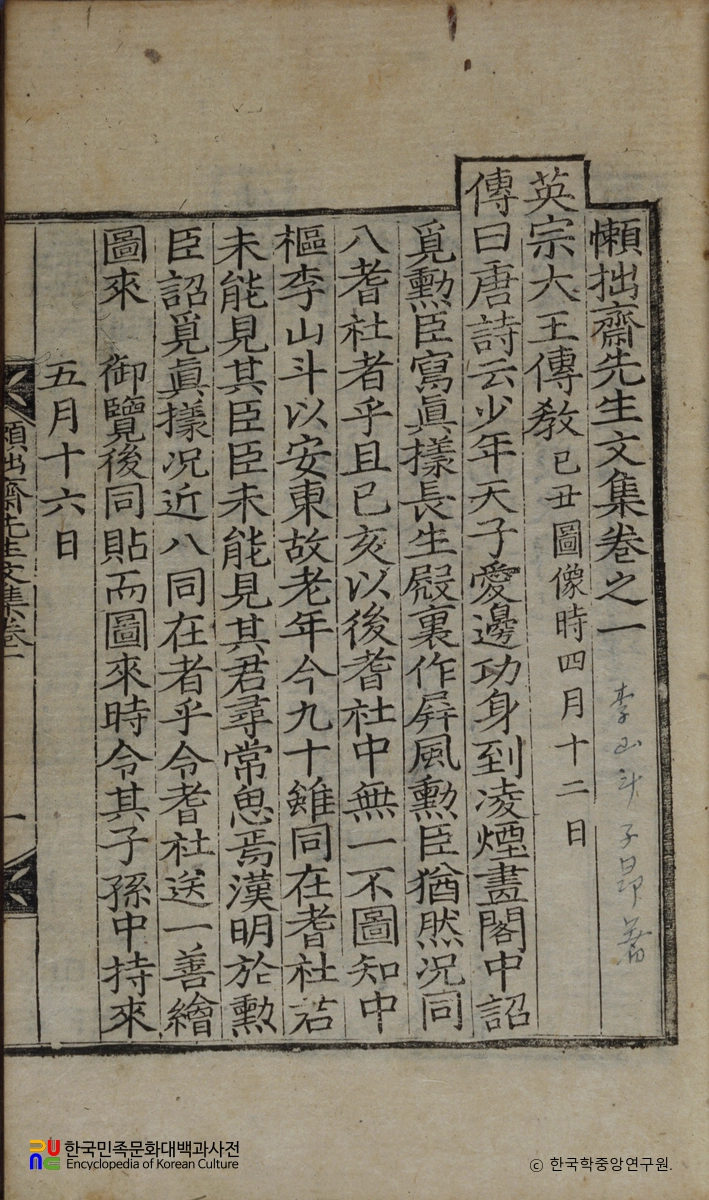 懶拙齋先生文集卷之一
李山斗 子昂 著
英宗大王傳敎 己丑圖像時四月十二日
傳曰唐詩云少年天子愛邊功身到凌煙畫閣中詔
覓勲臣寫眞㨾長生殿裏作屛風勲臣猶然况同
八耆社者乎且己亥以後耆社中無一不圖知中
樞李山斗以安東故老年今九十雖同在耆社若
未能見其臣臣未能見其君尋常思焉漢明於勲
臣詔覓眞㨾况近八同在者乎令耆社送一善繪
圖來 御覽後同貼而圖來時令其子孫中持來
五月十六日
懶拙齋先生文集卷一
一
한국민족문화대백과사전
Encyclopedia of Korean Culture
© 한국학중앙연구원.